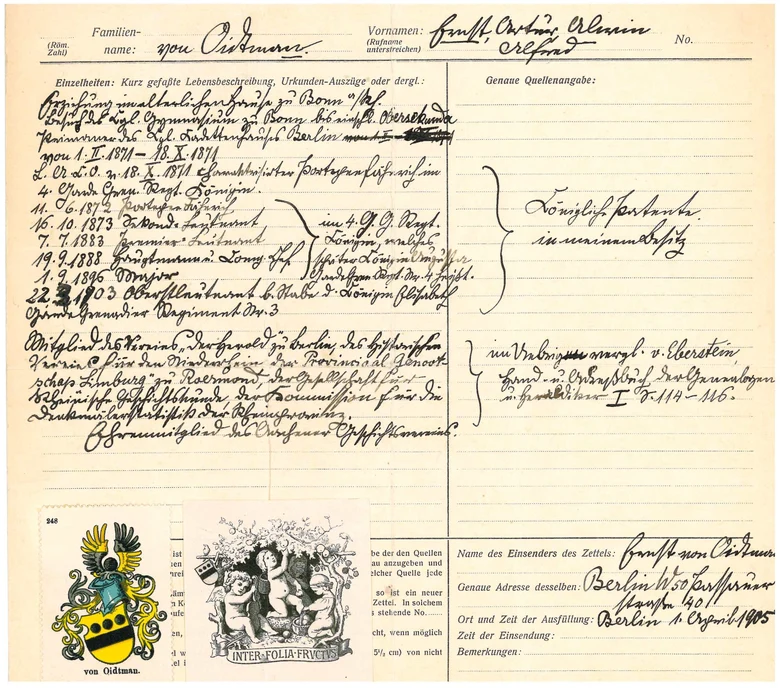 (Röm. Zahl)
Familienname: von Oidtman.
Vornamen: Ernst, Artur, Alwin
(Rufname unterstreichen)
Alfred
No.
Einzelheiten: Kurz gefaßte Lebensbeschreibung, Urkunden-Auszüge oder dergl.:
Erziehung im elterlichen Hause zu Bonn a/Rh.
Besuch des Kgl. Gymnasium zu Bonn bis einschl. Obersekunda
Primaner des Kgl. Kadettenhauses Berlin
von 1. II. 1871 – 18. X. 1871
L. A. K. O. v. 18. X. 1871 charakterisirter Portepeefähnrich im
4. Garde Gren. Regt. Königin.
11. 6. 1872 Portepee Fähnrich
16. 10. 1873 Sekonde-Leutnant
7. 7. 1883 Premier-Leutnant
19. 9. 1888 Hauptmann u. Comp. Chef
1. 9. 1896 Major
im 4. G. G. Regt.
Königin, welches
später Königin Augusta
Garde Gren. Regt. Nr. 4 heißt.
22. 1903 Oberstleutnant b. Stabe d. Königin Elisabeth
Garde Grenadier Regiment Nr. 3
Mitglied des Vereins, der Herold zu Berlin, des Historischen
Vereins für den Niederrhein, der Provinciaal Genoot-
schap Limburg zu Roermond, der Gesellschaft für
Rheinische Geschichtskunde, der Kommission für die
Denkmälerstatistik der Rheinprovinz.
Ehrenmitglied des Aachener Geschichtsvereins.
Genaue Quellenangabe:
Königliche Patente
in meinem Besitz
im Uebrigen vergl. v. Eberstein,
Hand- u. Adreßbuch der Genealogen
u. Heraldiker I S. 114–116.
248
von Oidtman.
INTER·FOLIA·FRVCTVS
ist
be der den Quellen
au anzugeben und
elcher Quelle jede
so ist ein neuer
Zettel. In solchem
s stehende No.
cht, wenn möglich
5½ cm) von nicht
Name des Einsenders des Zettels: Ernst von Oidtman
Genaue Adresse desselben: Berlin W 50 Passauer
straße 40
Ort und Zeit der Ausfüllung: Berlin 1. April 1905
Zeit der Einsendung:
Bemerkungen: